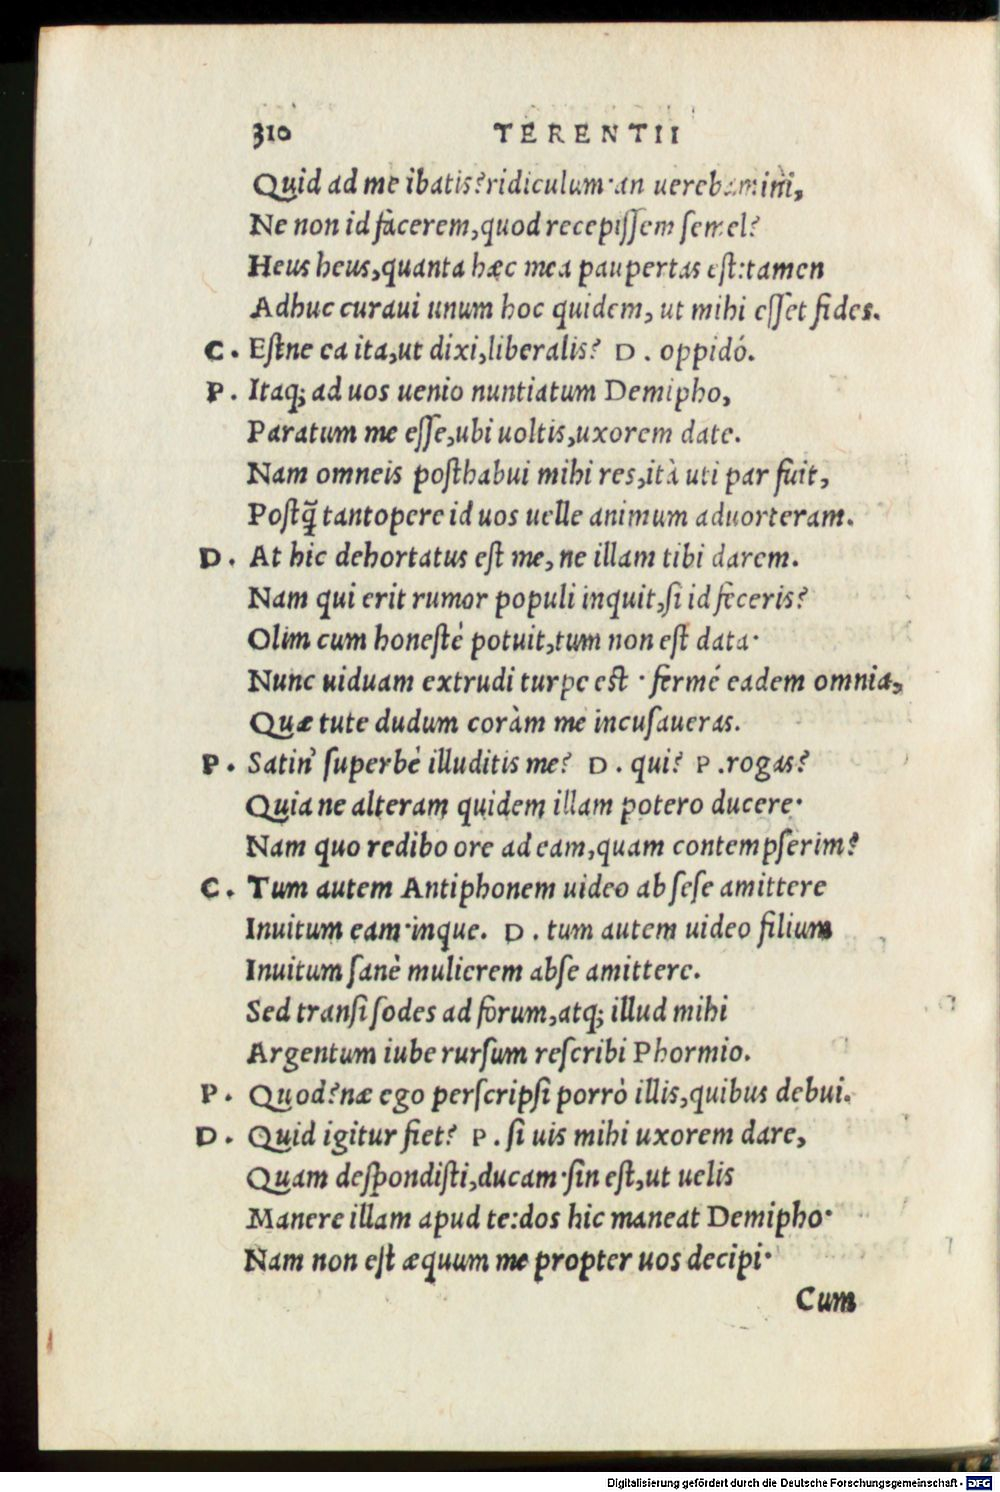 310 TERENTII
Quid ad me ibatis? ridiculum·an uerebamini,
Ne non id facerem, quod recepissem semel?
Heus heus, quanta hæc mea paupertas est: tamen
Adhuc curaui unum hoc quidem, ut mihi esset fides.
C. Estne ea ita, ut dixi, liberalis? D. oppidó.
P. Itaq; ad uos uenio nuntiatum Demipho,
Paratum me esse, ubi uoltis, uxorem date.
Nam omneis posthabui mihi res, ità uti par fuit,
Postq̃ tantopere id uos uelle animum aduorteram.
D. At hic dehortatus est me, ne illam tibi darem.
Nam qui erit rumor populi inquit, si id feceris?
Olim cum honesté potuit, tum non est data·
Nunc uiduam extrudi turpe est · fermé eadem omnia,
Quæ tute dudum coràm me incusaueras.
P. Satin' superbè illuditis me? D. qui? P. rogas?
Quia ne alteram quidem illam potero ducere·
Nam quo redibo ore ad eam, quam contempserim?
C. Tum autem Antiphonem uideo ab sese amittere
Inuitum eam·inque. D. tum autem uideo filium
Inuitum sanè mulierem abse amittere.
Sed transi sodes ad forum, atq; illud mihi
Argentum iube rursum rescribi Phormio.
P. Quod? næ ego perscripsi porrò illis, quibus debui.
D. Quid igitur fiet? P. si uis mihi uxorem dare,
Quam despondisti, ducam·sin est, ut uelis
Manere illam apud te: dos hic maneat Demipho·
Nam non est æquum me propter uos decipi·
Cum
Digitalisierung gefördert durch die Deutsche Forschungsgemeinschaft - DFG